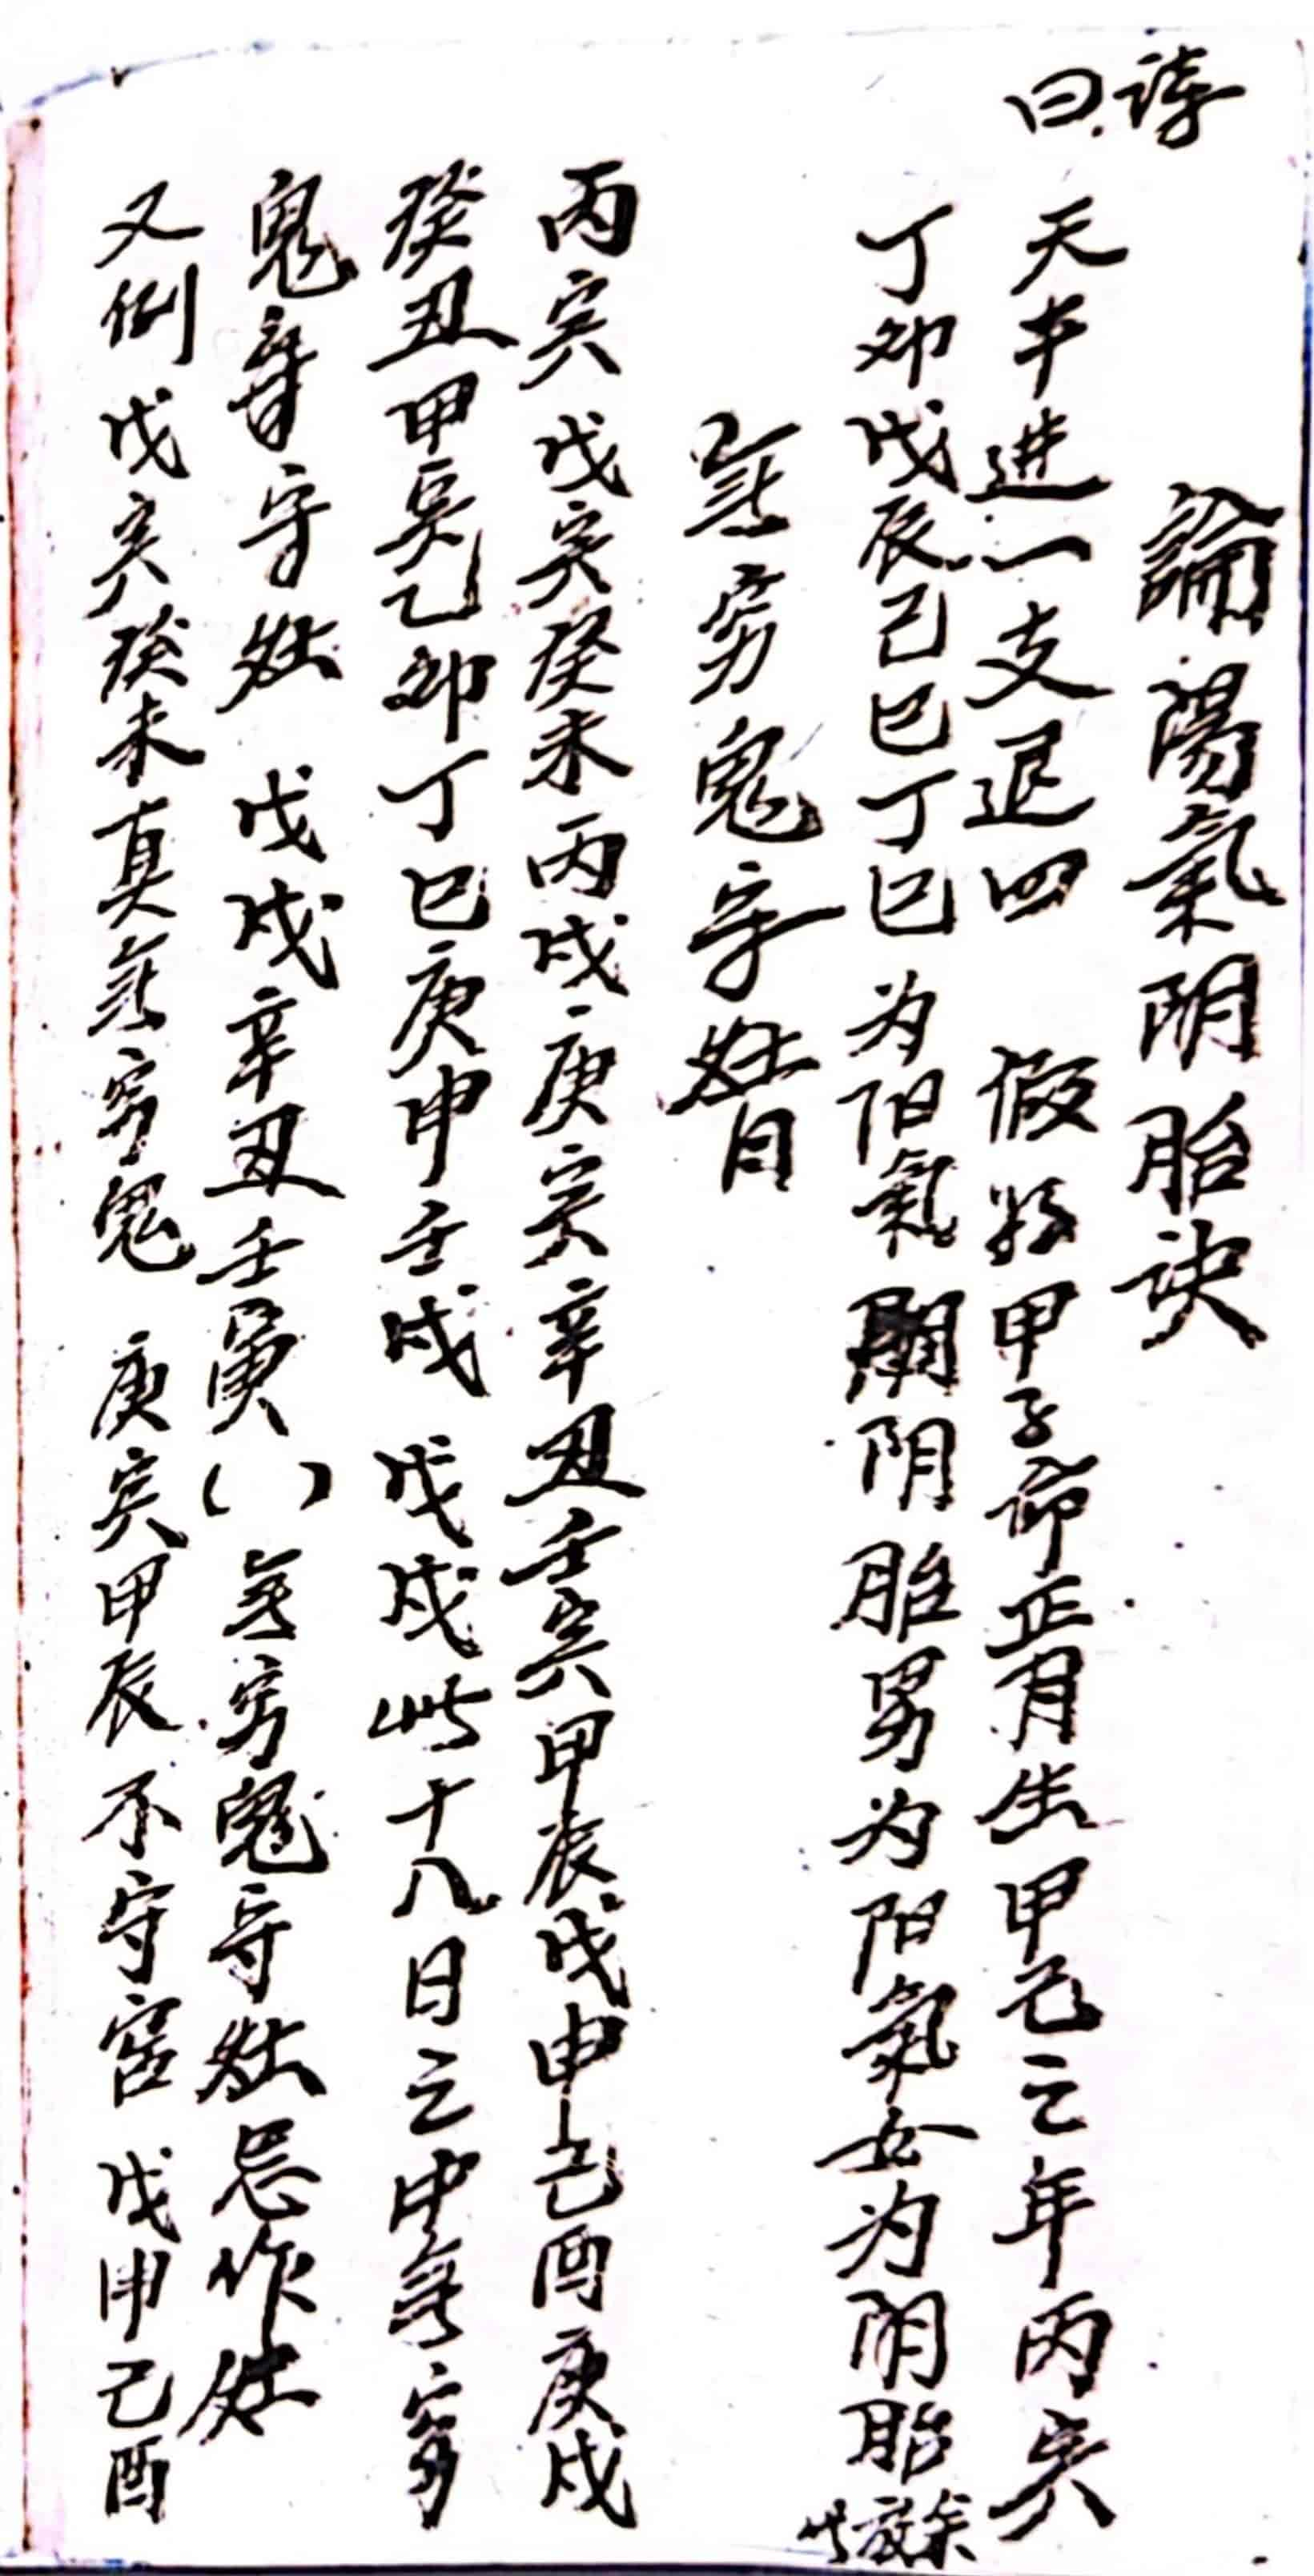 論陽氣阴胎诀
诗曰
天干进一支退四 假如甲子命正月生甲己之年丙寅
丁卯戊辰己巳丁巳为阳氣阴胎男为阳氣女为阴胎余放此
無穷鬼守灶日
丙寅戊寅癸未丙戌庚寅辛丑壬寅甲辰戊申己酉庚戌
癸丑甲寅乙卯丁巳庚申壬戌戊戌此十八日之中無穷
鬼守灶 戊戌辛丑壬寅()無穷鬼守灶忌作灶
又例戊寅癸未真無穷鬼 庚寅甲辰不守宫戊申己酉